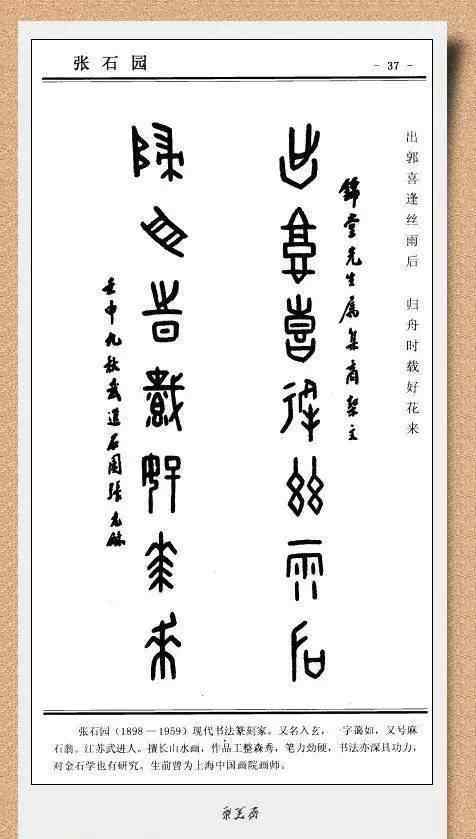 张石园
- 37 -
出郭喜逢丝雨后 归舟时载好花来
锦堂先生属集商契文
出郭喜逢丝雨后
归舟时载好花来
壬申九秋武进石园张克龢
张石园（1898—1959）现代书法篆刻家。又名入玄， 字蔼如，又号麻
石翁。江苏武进人。擅长山水画，作品工整森秀，笔力劲硬，书法亦深具功力，
对金石学也有研究。生前曾为上海中国画院画师。